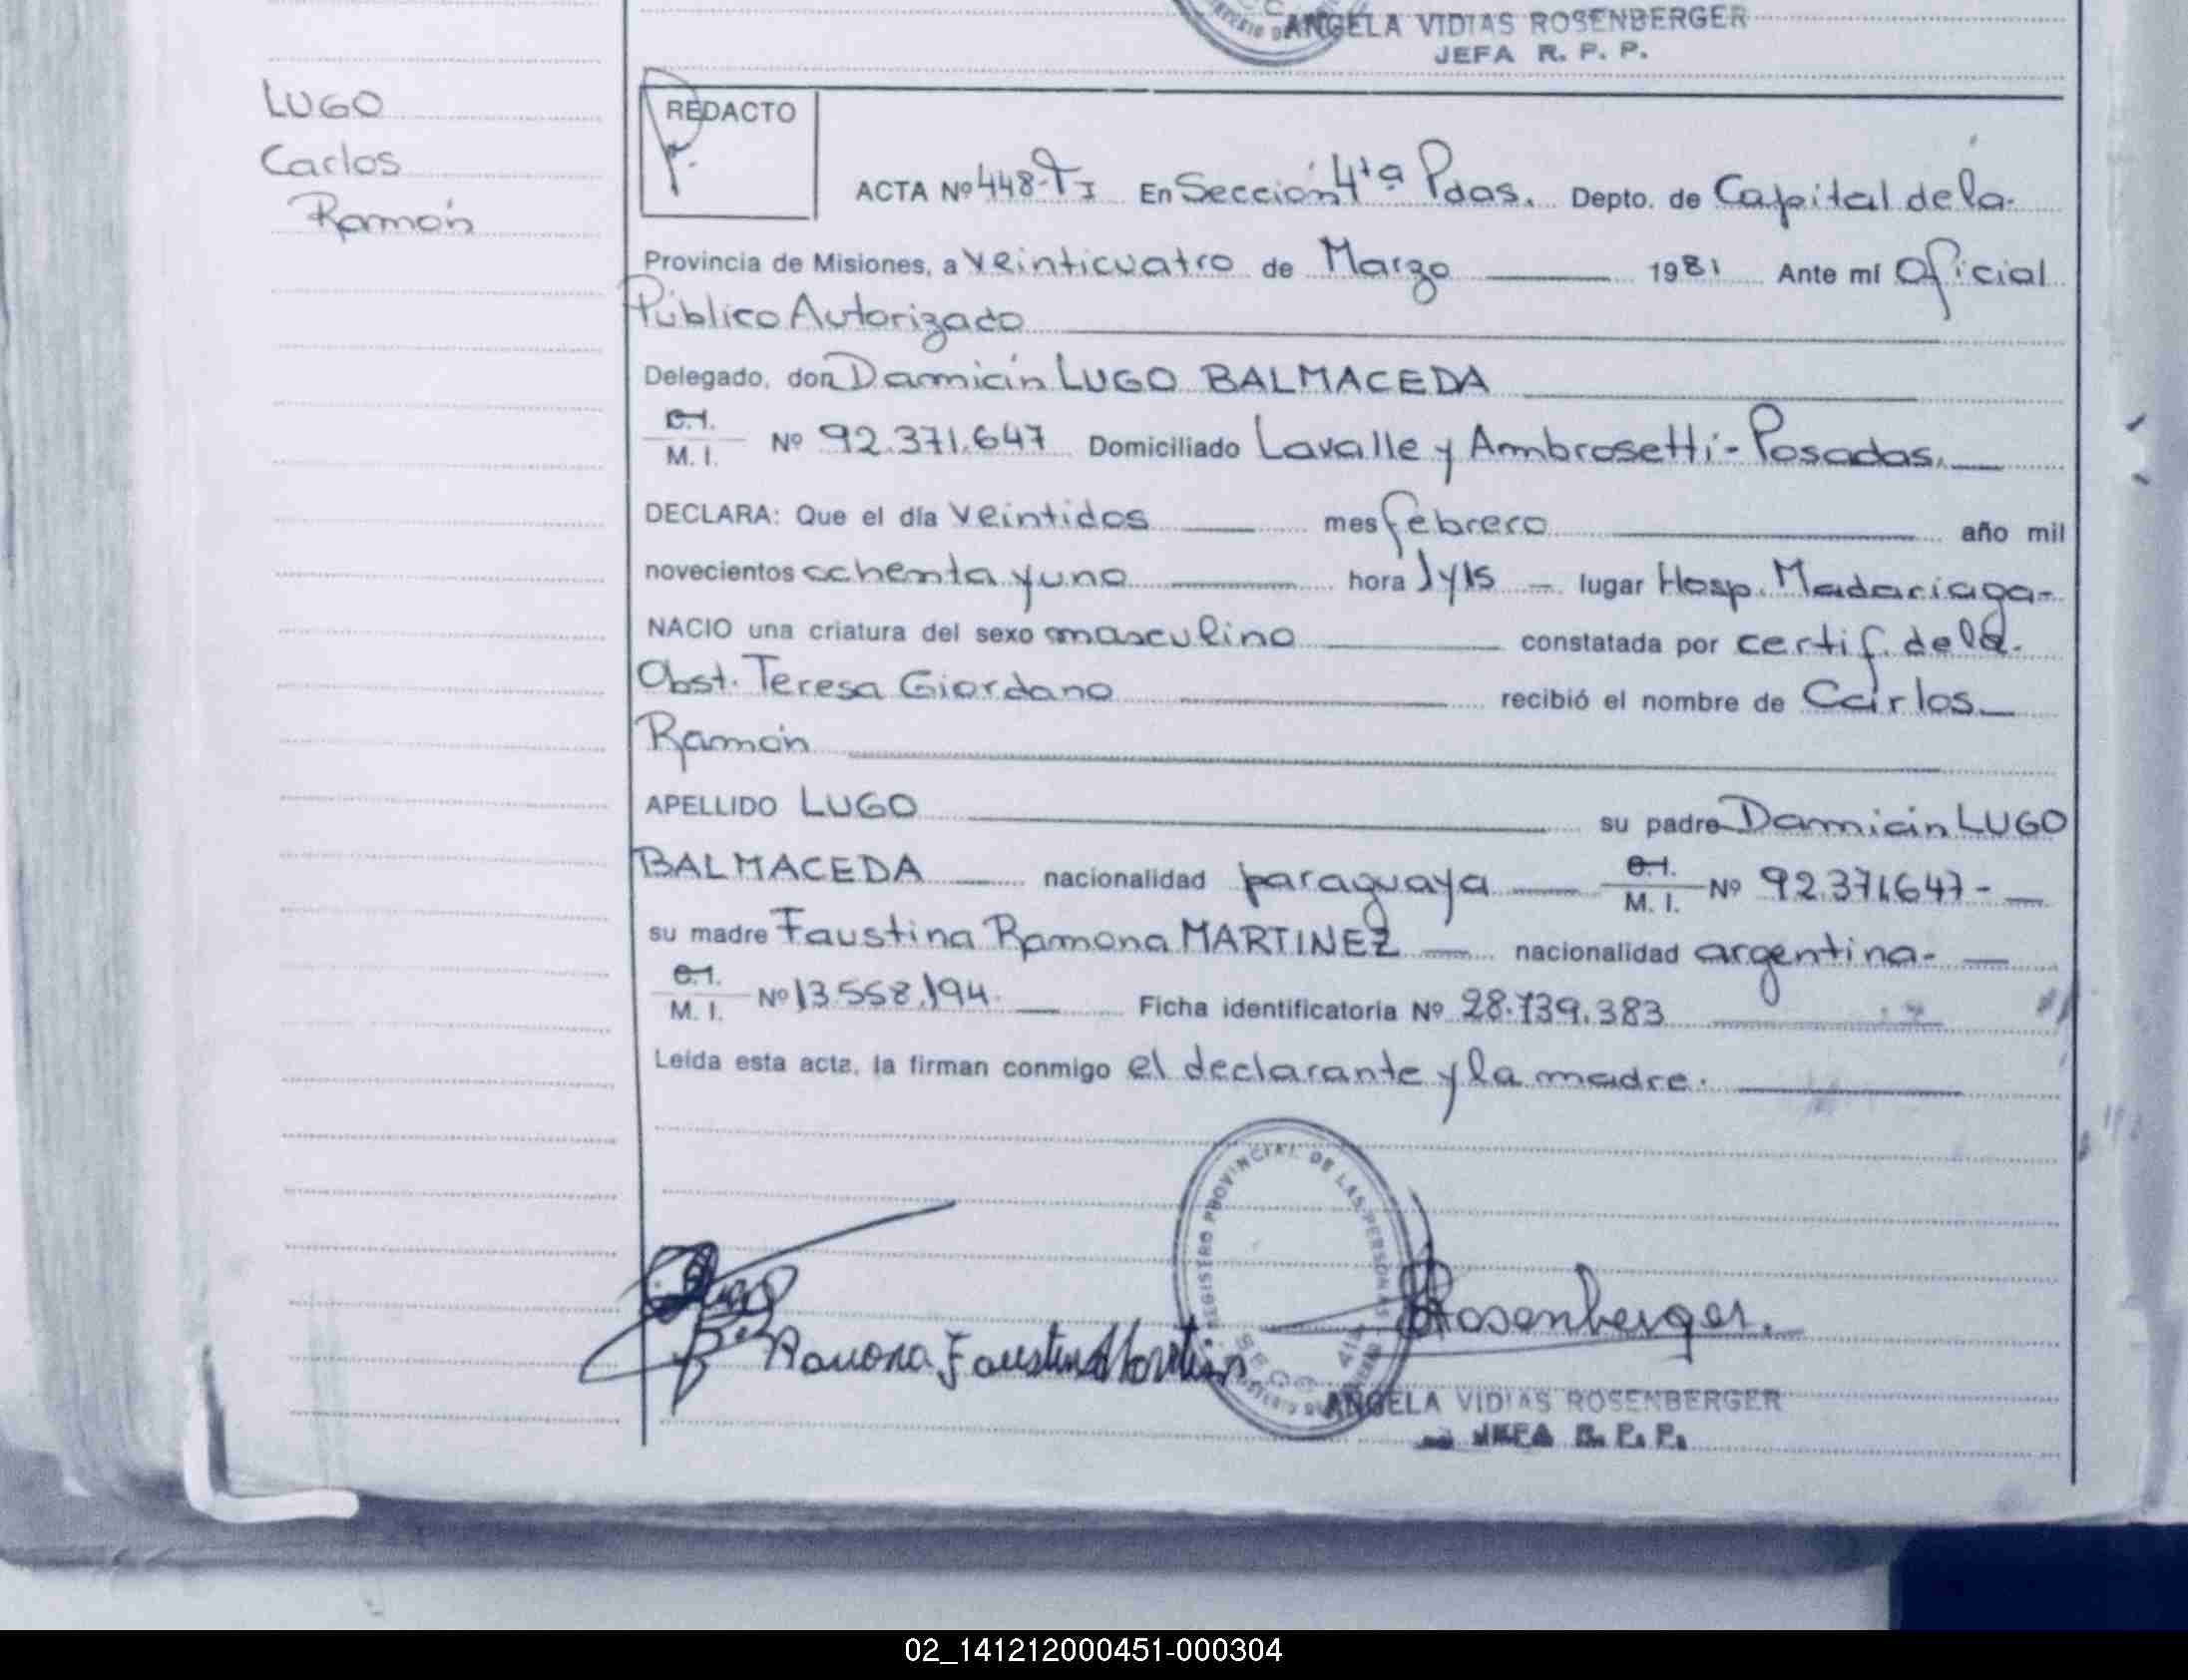 ANGELA VIDIAS ROSENBERGER
JEFA R. P. P.
LUGO
Carlos
Ramón
REDACTO
ACTA Nº 448-TI En Sección 4ta Pdas. Depto. de Capital de la
Provincia de Misiones, a veinticuatro de Marzo 1981 Ante mí Oficial
Público Autorizado
Delegado, don Damián LUGO BALMACEDA
C.I. M. I. Nº 92.371.647 Domiciliado Lavalle y Ambrosetti - Posadas.
DECLARA: Que el día veintidos mes febrero año mil
novecientos ochenta y uno hora 1 y 15 lugar Hosp. Madariaga-
NACIO una criatura del sexo masculino constatada por certif. de la
Obst. Teresa Giordano recibió el nombre de Carlos
Ramón
APELLIDO LUGO su padre Damián LUGO
BALMACEDA nacionalidad paraguaya C.I. M. I. Nº 92.371.647-
su madre Faustina Ramona MARTINEZ nacionalidad argentina-
C.I. M. I. Nº 13.558.194 Ficha identificatoria Nº 28.739.383
Leída esta acta, la firman conmigo el declarante y la madre.
REGISTRO PROVINCIAL DE LAS PERSONAS
Rosenberger.
Ramona Faustina Martinez
ANGELA VIDIAS ROSENBERGER
JEFA R. P. P.
02_141212000451-000304